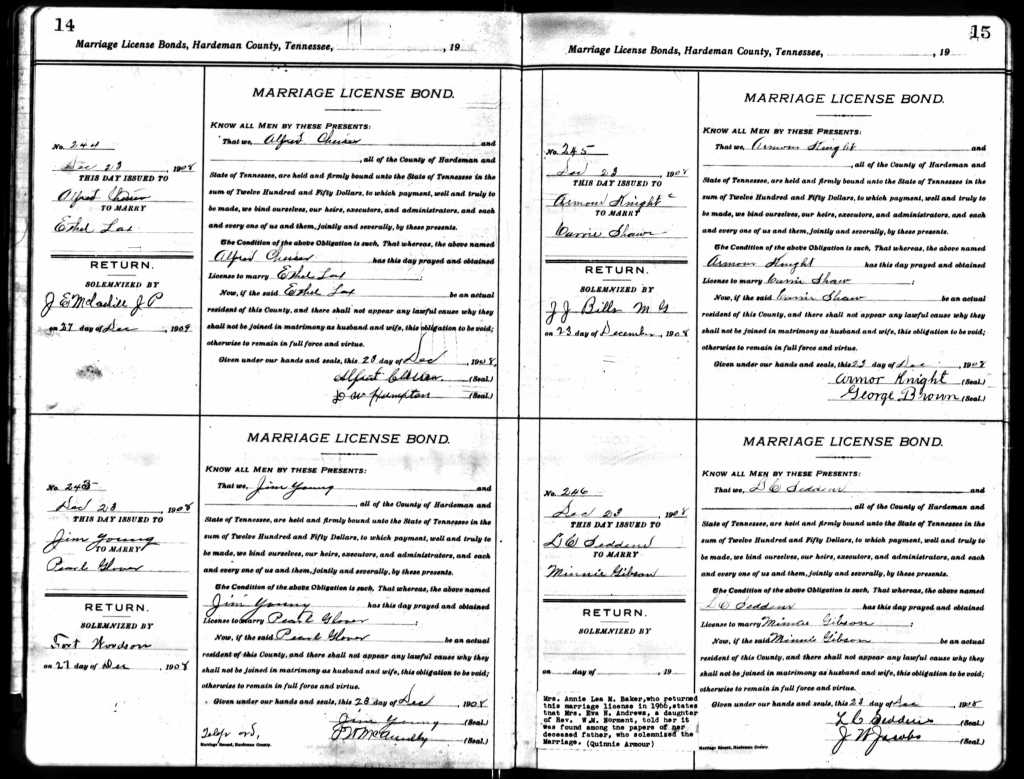 14
Marriage License Bonds, Hardeman County, Tennessee, , 19
No. 244
Dec 23, 1908
THIS DAY ISSUED TO
Alfred
TO MARRY
Ethel Lax
RETURN.
SOLEMNIZED BY
J E J P
on 27 day of Dec, 1908
MARRIAGE LICENSE BOND.
KNOW ALL MEN BY THESE PRESENTS:
That we, Alfred and
, all of the County of Hardeman and
State of Tennessee, are held and firmly bound unto the State of Tennessee in the
sum of Twelve Hundred and Fifty Dollars, to which payment, well and truly to
be made, we bind ourselves, our heirs, executors, and administrators, and each
and every one of us and them, jointly and severally, by these presents.
The Condition of the above Obligation is such, That whereas, the above named
Alfred has this day prayed and obtained
License to marry Ethel Lax ;
Now, if the said Ethel Lax be an actual
resident of this County, and there shall not appear any lawful cause why they
shall not be joined in matrimony as husband and wife, this obligation to be void;
otherwise to remain in full force and virtue.
Given under our hands and seals, this 23 day of Dec, 1908.
Alfred (Seal.)
J W Hampton (Seal.)
No. 243
Dec 23, 1908
THIS DAY ISSUED TO
Jim Young
TO MARRY
Pearl Glover
RETURN.
SOLEMNIZED BY
Fort Woodson
on 27 day of Dec 1908
MARRIAGE LICENSE BOND.
KNOW ALL MEN BY THESE PRESENTS:
That we, Jim Young and
, all of the County of Hardeman and
State of Tennessee, are held and firmly bound unto the State of Tennessee in the
sum of Twelve Hundred and Fifty Dollars, to which payment, well and truly to
be made, we bind ourselves, our heirs, executors, and administrators, and each
and every one of us and them, jointly and severally, by these presents.
The Condition of the above Obligation is such, That whereas, the above named
Jim Young has this day prayed and obtained
License to marry Pearl Glover ;
Now, if the said Pearl Glover be an actual
resident of this County, and there shall not appear any lawful cause why they
shall not be joined in matrimony as husband and wife, this obligation to be void;
otherwise to remain in full force and virtue.
Given under our hands and seals, this 23 day of Dec, 1908
Jim Young (Seal.)
(Seal.)
Marriage Record, Hardeman County.
15
Marriage License Bonds, Hardeman County, Tennessee, , 19
No. 245
Dec 23, 1908
THIS DAY ISSUED TO
Armour Knight c
TO MARRY
Currie Shaw
RETURN.
SOLEMNIZED BY
J J Bills M G
on 23 day of December, 1908
MARRIAGE LICENSE BOND.
KNOW ALL MEN BY THESE PRESENTS:
That we, Armour Knight and
, all of the County of Hardeman and
State of Tennessee, are held and firmly bound unto the State of Tennessee in the
sum of Twelve Hundred and Fifty Dollars, to which payment, well and truly to
be made, we bind ourselves, our heirs, executors, and administrators, and each
and every one of us and them, jointly and severally, by these presents.
The Condition of the above Obligation is such, That whereas, the above named
Armour Knight has this day prayed and obtained
License to marry Currie Shaw ;
Now, if the said Currie Shaw be an actual
resident of this County, and there shall not appear any lawful cause why they
shall not be joined in matrimony as husband and wife, this obligation to be void;
otherwise to remain in full force and virtue.
Given under our hands and seals, this 23 day of Dec, 1908
Armor Knight (Seal.)
George Brown (Seal.)
No. 246
Dec 23, 1908
THIS DAY ISSUED TO
L C Seddens
TO MARRY
Minnie Gibson
RETURN.
SOLEMNIZED BY
on day of , 19
Mrs. Annie Lee M. Baker,who returned
this marriage license in 1966,states
that Mrs. Eva N. Andrews, a daughter
of Rev. W.M. Norment, told her it
was found among the papers of her
deceased father, who solemnized the
Marriage. (Quinnie Armour)
MARRIAGE LICENSE BOND.
KNOW ALL MEN BY THESE PRESENTS:
That we, L C Seddens and
, all of the County of Hardeman and
State of Tennessee, are held and firmly bound unto the State of Tennessee in the
sum of Twelve Hundred and Fifty Dollars, to which payment, well and truly to
be made, we bind ourselves, our heirs, executors, and administrators, and each
and every one of us and them, jointly and severally, by these presents.
The Condition of the above Obligation is such, That whereas, the above named
L C Seddens has this day prayed and obtained
License to marry Minnie Gibson ;
Now, if the said Minnie Gibson be an actual
resident of this County, and there shall not appear any lawful cause why they
shall not be joined in matrimony as husband and wife, this obligation to be void;
otherwise to remain in full force and virtue.
Given under our hands and seals, this 23 day of Dec, 1908
L C Seddens (Seal.)
J W Jacobs (Seal.)
Marriage Record, Hardeman County.